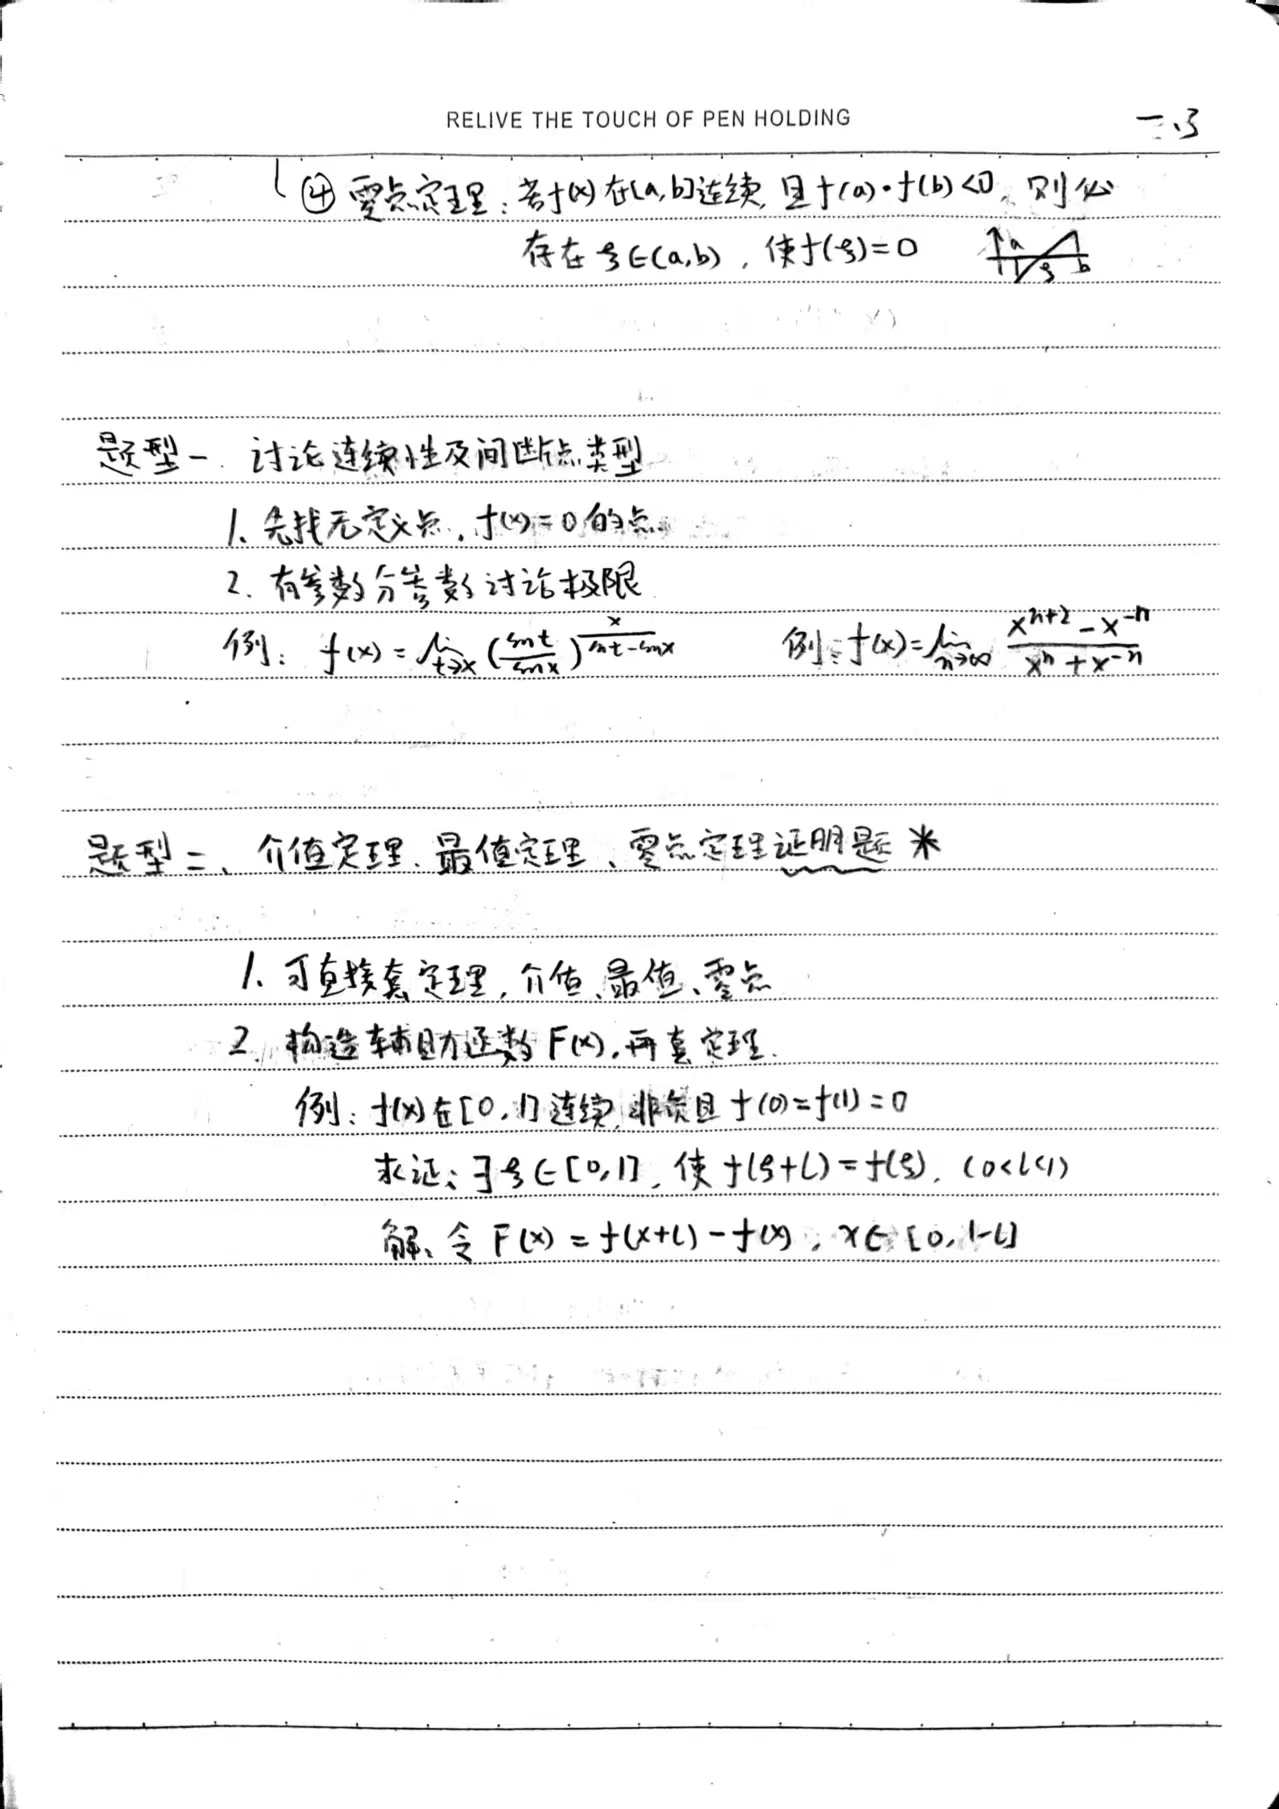 RELIVE THE TOUCH OF PEN HOLDING
④ 零点定理：若f(x)在[a,b]连续,且f(a)·f(b)<0，则必
存在ξ∈(a,b)，使f(ξ)=0
a ξ b
题型一 讨论连续性及间断点类型
1、先找无定义点，f(x)=0的点.
2. 有参数分参数讨论极限
例：f(x)=lim t→x (sint/sinx)^(x/(sint-sinx)) 例：f(x)=lim n→∞ (x^(n+2)-x^(-n))/(x^n+x^(-n))
题型二、介值定理、最值定理、零点定理证明题 *
1、可直接套定理，介值、最值、零点
2. 构造辅助函数F(x)，再套定理.
例：f(x)在[0,1]连续,非负且f(0)=f(1)=0
求证：∃ξ∈[0,1]，使f(ξ+l)=f(ξ)，(0<l<1)
解、令F(x)=f(x+l)-f(x)，x∈[0,1-l]